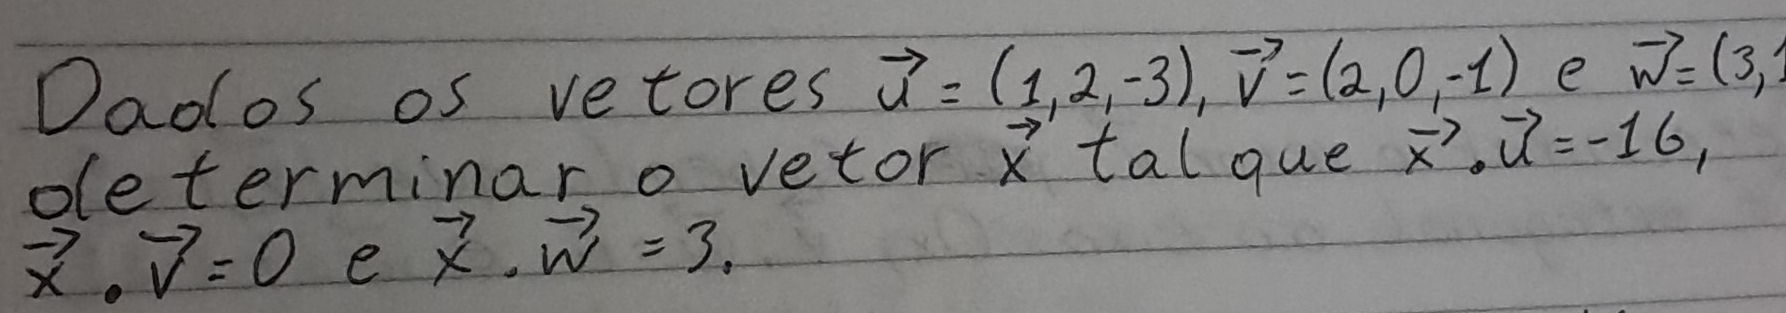 Dados os vetores u⃗ = (1,2,-3), v⃗ = (2,0,-1) e w⃗ = (3,1
determinar o vetor x⃗ tal que x⃗ . u⃗ = -16,
x⃗ . v⃗ = 0 e x⃗ . w⃗ = 3.